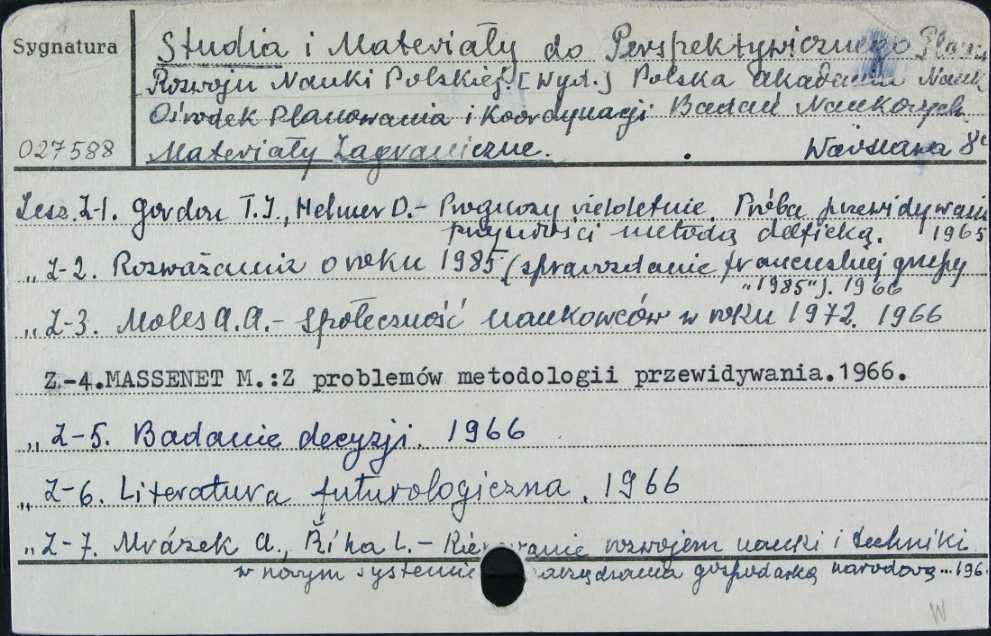 Sygnatura
Studia i Materiały do Perspektywicznego Planu
Rozwoju Nauki Polskiej. [Wyd.] Polska Akademia Nauk
Ośrodek Planowania i Koordynacji Badań Naukowych.
027588 Materiały Zagraniczne. Warszawa 8°
Zesz. Z-1. Gordon T.J., Helmer O.- Prognozy wieloletnie. Próba przewidywania
przyszłości metodą delficką. 1965
„ Z-2. Rozważania o roku 1985 (sprawozdanie francuskiej grupy
„1985"). 1966
„ Z-3. Moles A.A.- Społeczność naukowców w roku 1972. 1966
Z.-4.MASSENET M.:Z problemów metodologii przewidywania.1966.
„ Z-5. Badanie decyzji. 1966
„ Z-6. Literatura futurologiczna. 1966
„ Z-7. Mrázek A., Říha L.- rozwojem nauki i techniki
w nowym systemie gospodarką narodową...196
W